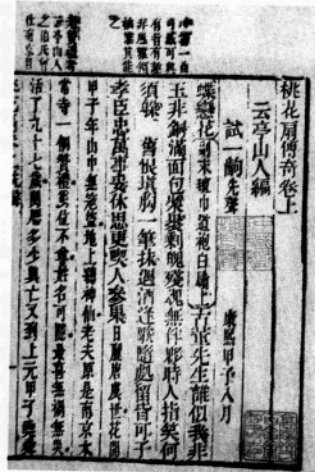 桃花扇傳奇卷上
云亭山人編
試一齣先聲 康熙甲子八月
蝶戀花副末氊巾道袍白鬚上古董先生誰似我非
玉非銅滿面包漿裹剩魄殘魂無伴夥時人指笑何
須躲 舊恨填胸一筆抹遇酒逢歌隨處留皆可子
孝臣忠萬事妥休思更喫人參果日麗唐虞世花開
甲子年山中無寇盜地上總神仙老夫原是南京太
常寺一個贊禮爵位不尊姓名可隱最喜無禍無災
活了九十七歲閱歷多少興亡又到上元甲子堯舜